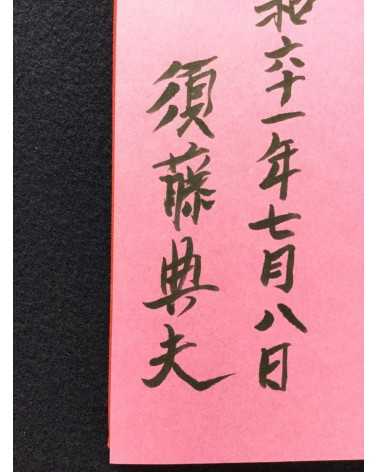 和六十一年七月八日
須藤典夫